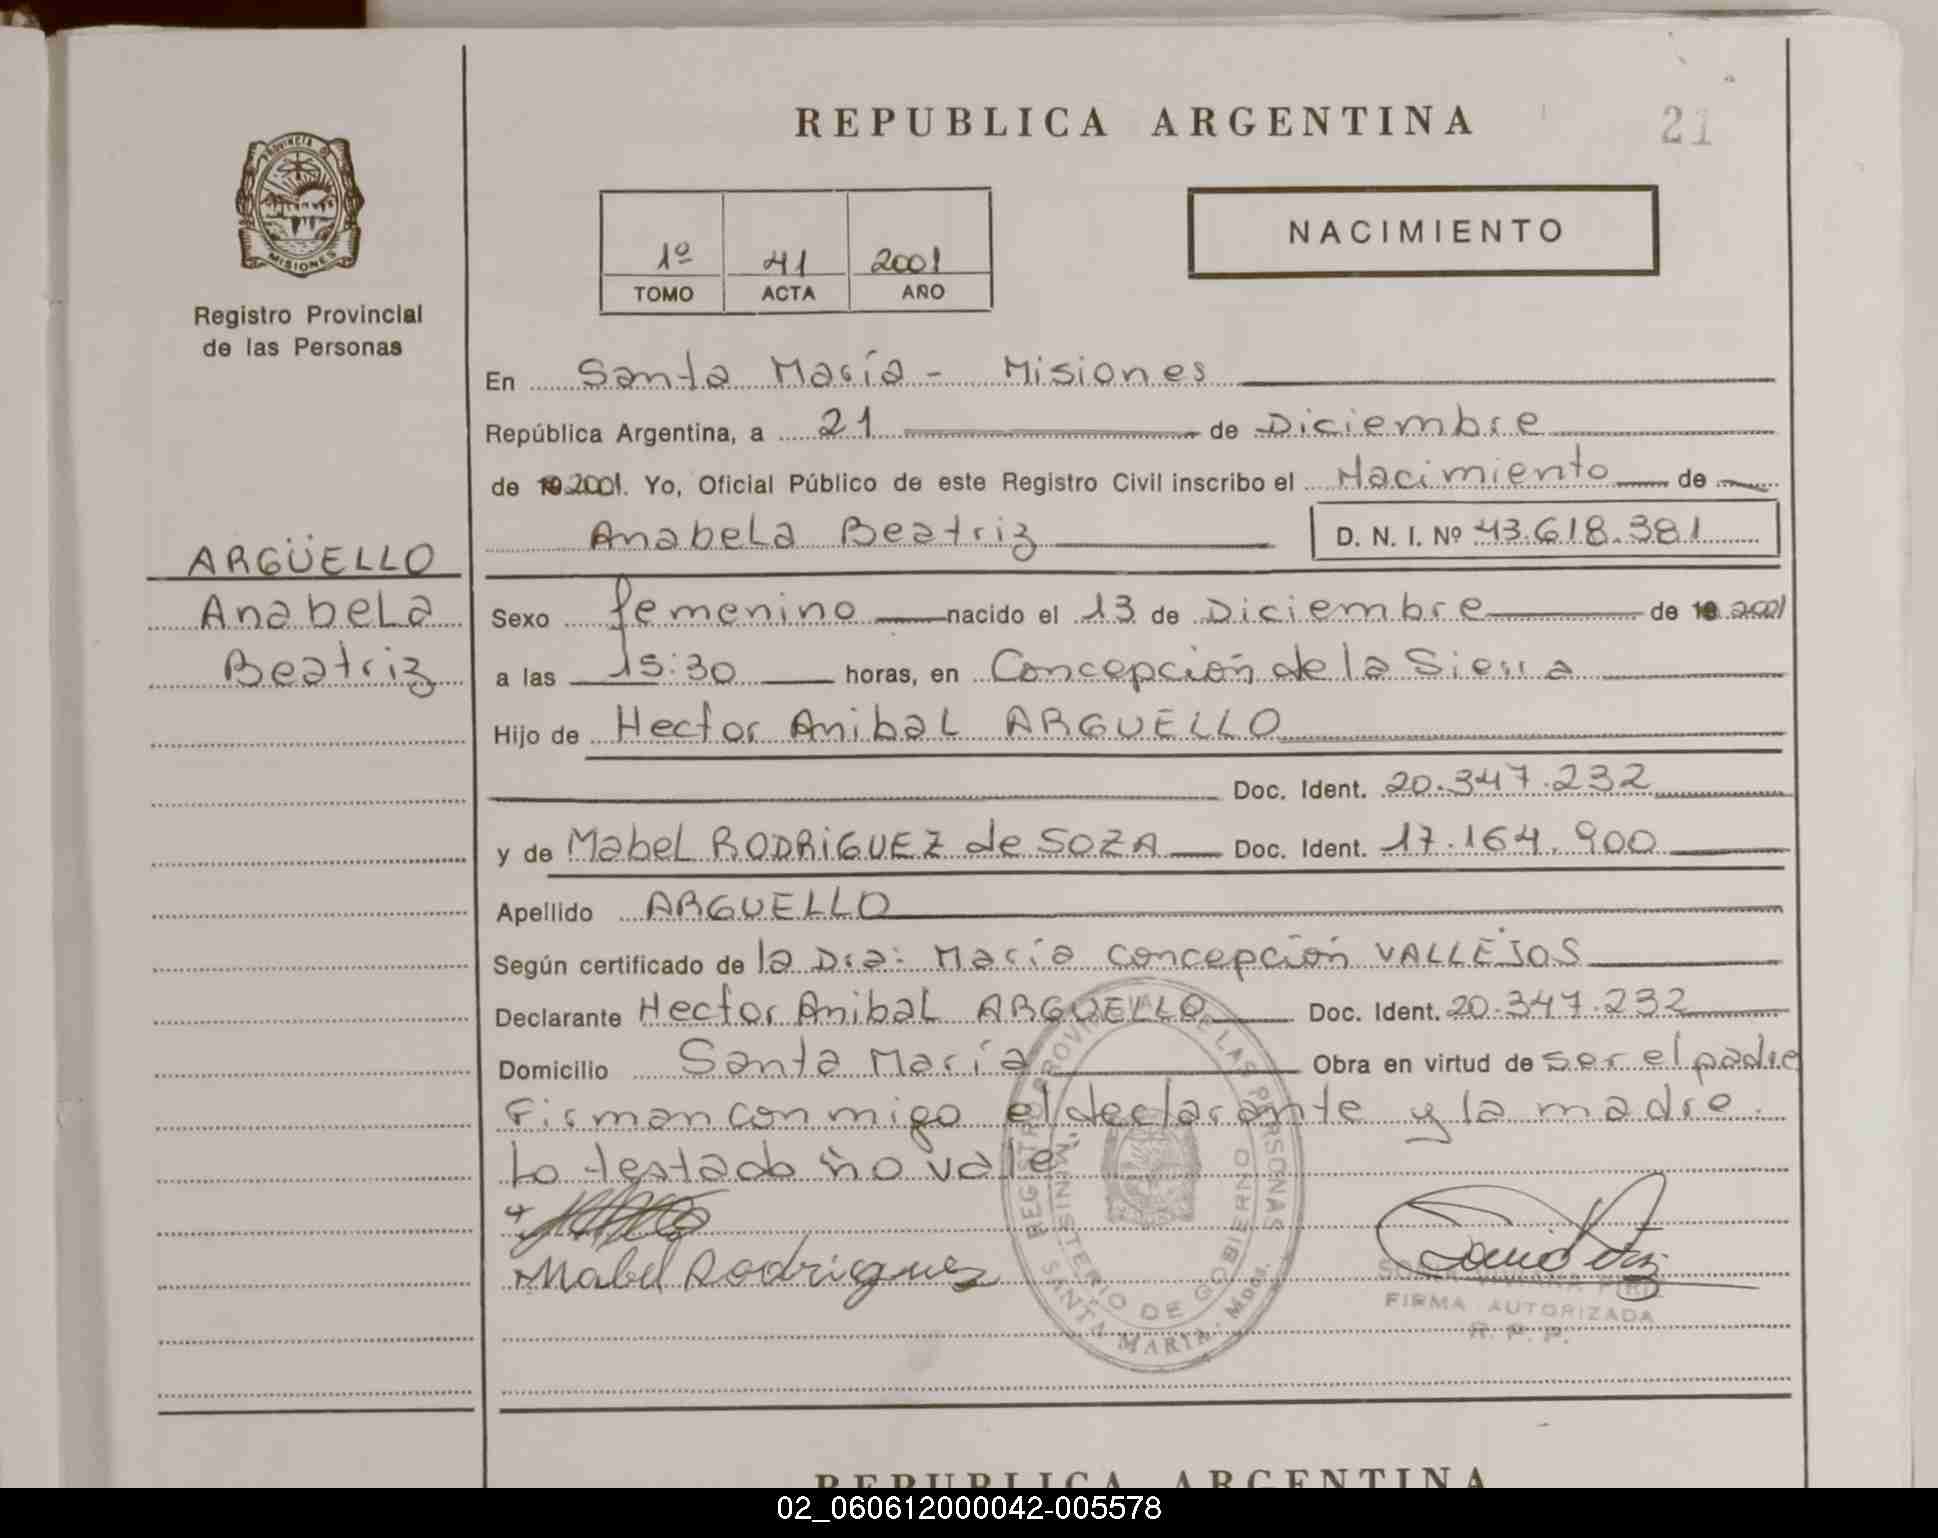 REPUBLICA ARGENTINA
21
PROVINCIA DE
MISIONES
Registro Provincial
de las Personas
1º 41 2001
TOMO ACTA AÑO
NACIMIENTO
En Santa María - Misiones
República Argentina, a 21 de Diciembre
de 2001. Yo, Oficial Público de este Registro Civil inscribo el Nacimiento de
Anabela Beatriz D. N. I. Nº 43.618.381
ARGÜELLO
Anabela
Beatriz
Sexo femenino nacido el 13 de Diciembre de 2001
a las 15:30 horas, en Concepción de la Sierra
Hijo de Hector Anibal ARGUELLO
Doc. Ident. 20.347.232
y de Mabel RODRIGUEZ de SOZA Doc. Ident. 17.164.900
Apellido ARGUELLO
Según certificado de la Dra: María Concepción VALLEJOS
Declarante Hector Anibal ARGUELLO Doc. Ident. 20.347.232
Domicilio Santa María Obra en virtud de ser el padre
Firman conmigo el declarante y la madre.
Lo testado no vale
Mabel Rodriguez
REGISTRO PROVINCIAL DE LAS PERSONAS
MINISTERIO DE GOBIERNO
SANTA MARIA - Mnes.
FIRMA AUTORIZADA
R. P. P.
REPUBLICA ARGENTINA
02_060612000042-005578